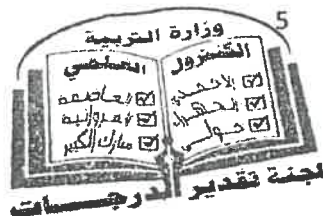 5
وزارة التربية
الكنترول العلمي
الأحمدي
الجهراء
حولي
العاصمة
الفروانية
مبارك الكبير
لجنة تقدير الدرجات